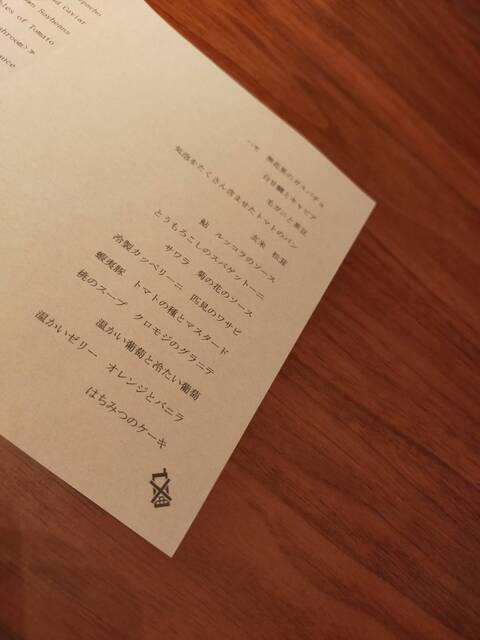 pacho
nd Caviar
wn Soybeans
bles of Tomato
shroom》≫
uce
無花果のガスパチョ
白甘鯛とキャビア
毛ガニと茶豆
気泡をたくさん含ませたトマトのパン
玄米 松茸
鮎 ルッコラのソース
とうもろこしのスパゲットーニ
サワラ 菊の花のソース
冷製カッペリーニ 匹見のワサビ
蝦夷豚 トマトの種とマスタード
桃のスープ クロモジのグラニテ
温かい葡萄と冷たい葡萄
温かいゼリー オレンジとバニラ
はちみつのケーキ